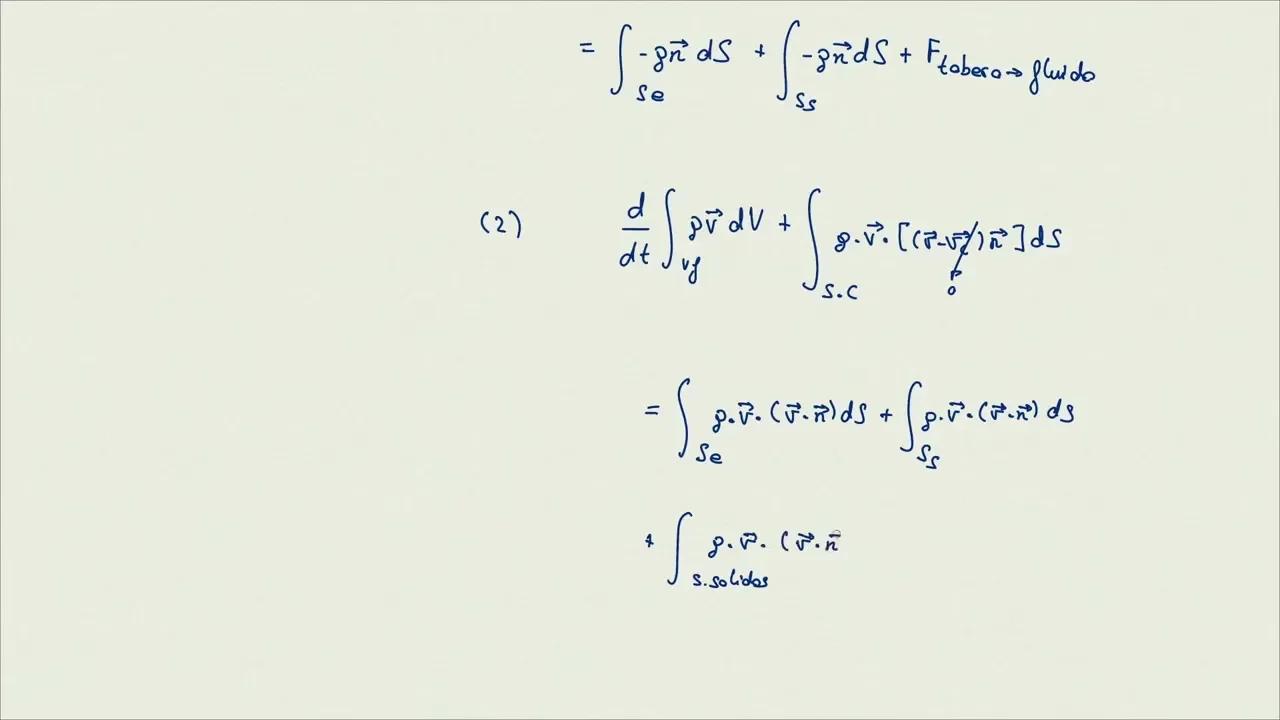 = ∫_{Se} -p\vec{n} dS + ∫_{Ss} -p\vec{n} dS + F_{tobera→fluido}
(2) \frac{d}{dt} ∫_{Vf} ρ\vec{v} dV + ∫_{S.C} ρ·\vec{v}·[(\vec{v}-\vec{v_c})\vec{n}] dS
0
= ∫_{Se} ρ·\vec{v}·(\vec{v}·\vec{n}) dS + ∫_{Ss} ρ·\vec{v}·(\vec{v}·\vec{n}) dS
+ ∫_{S.solidos} ρ·\vec{v}·(\vec{v}·\vec{n}